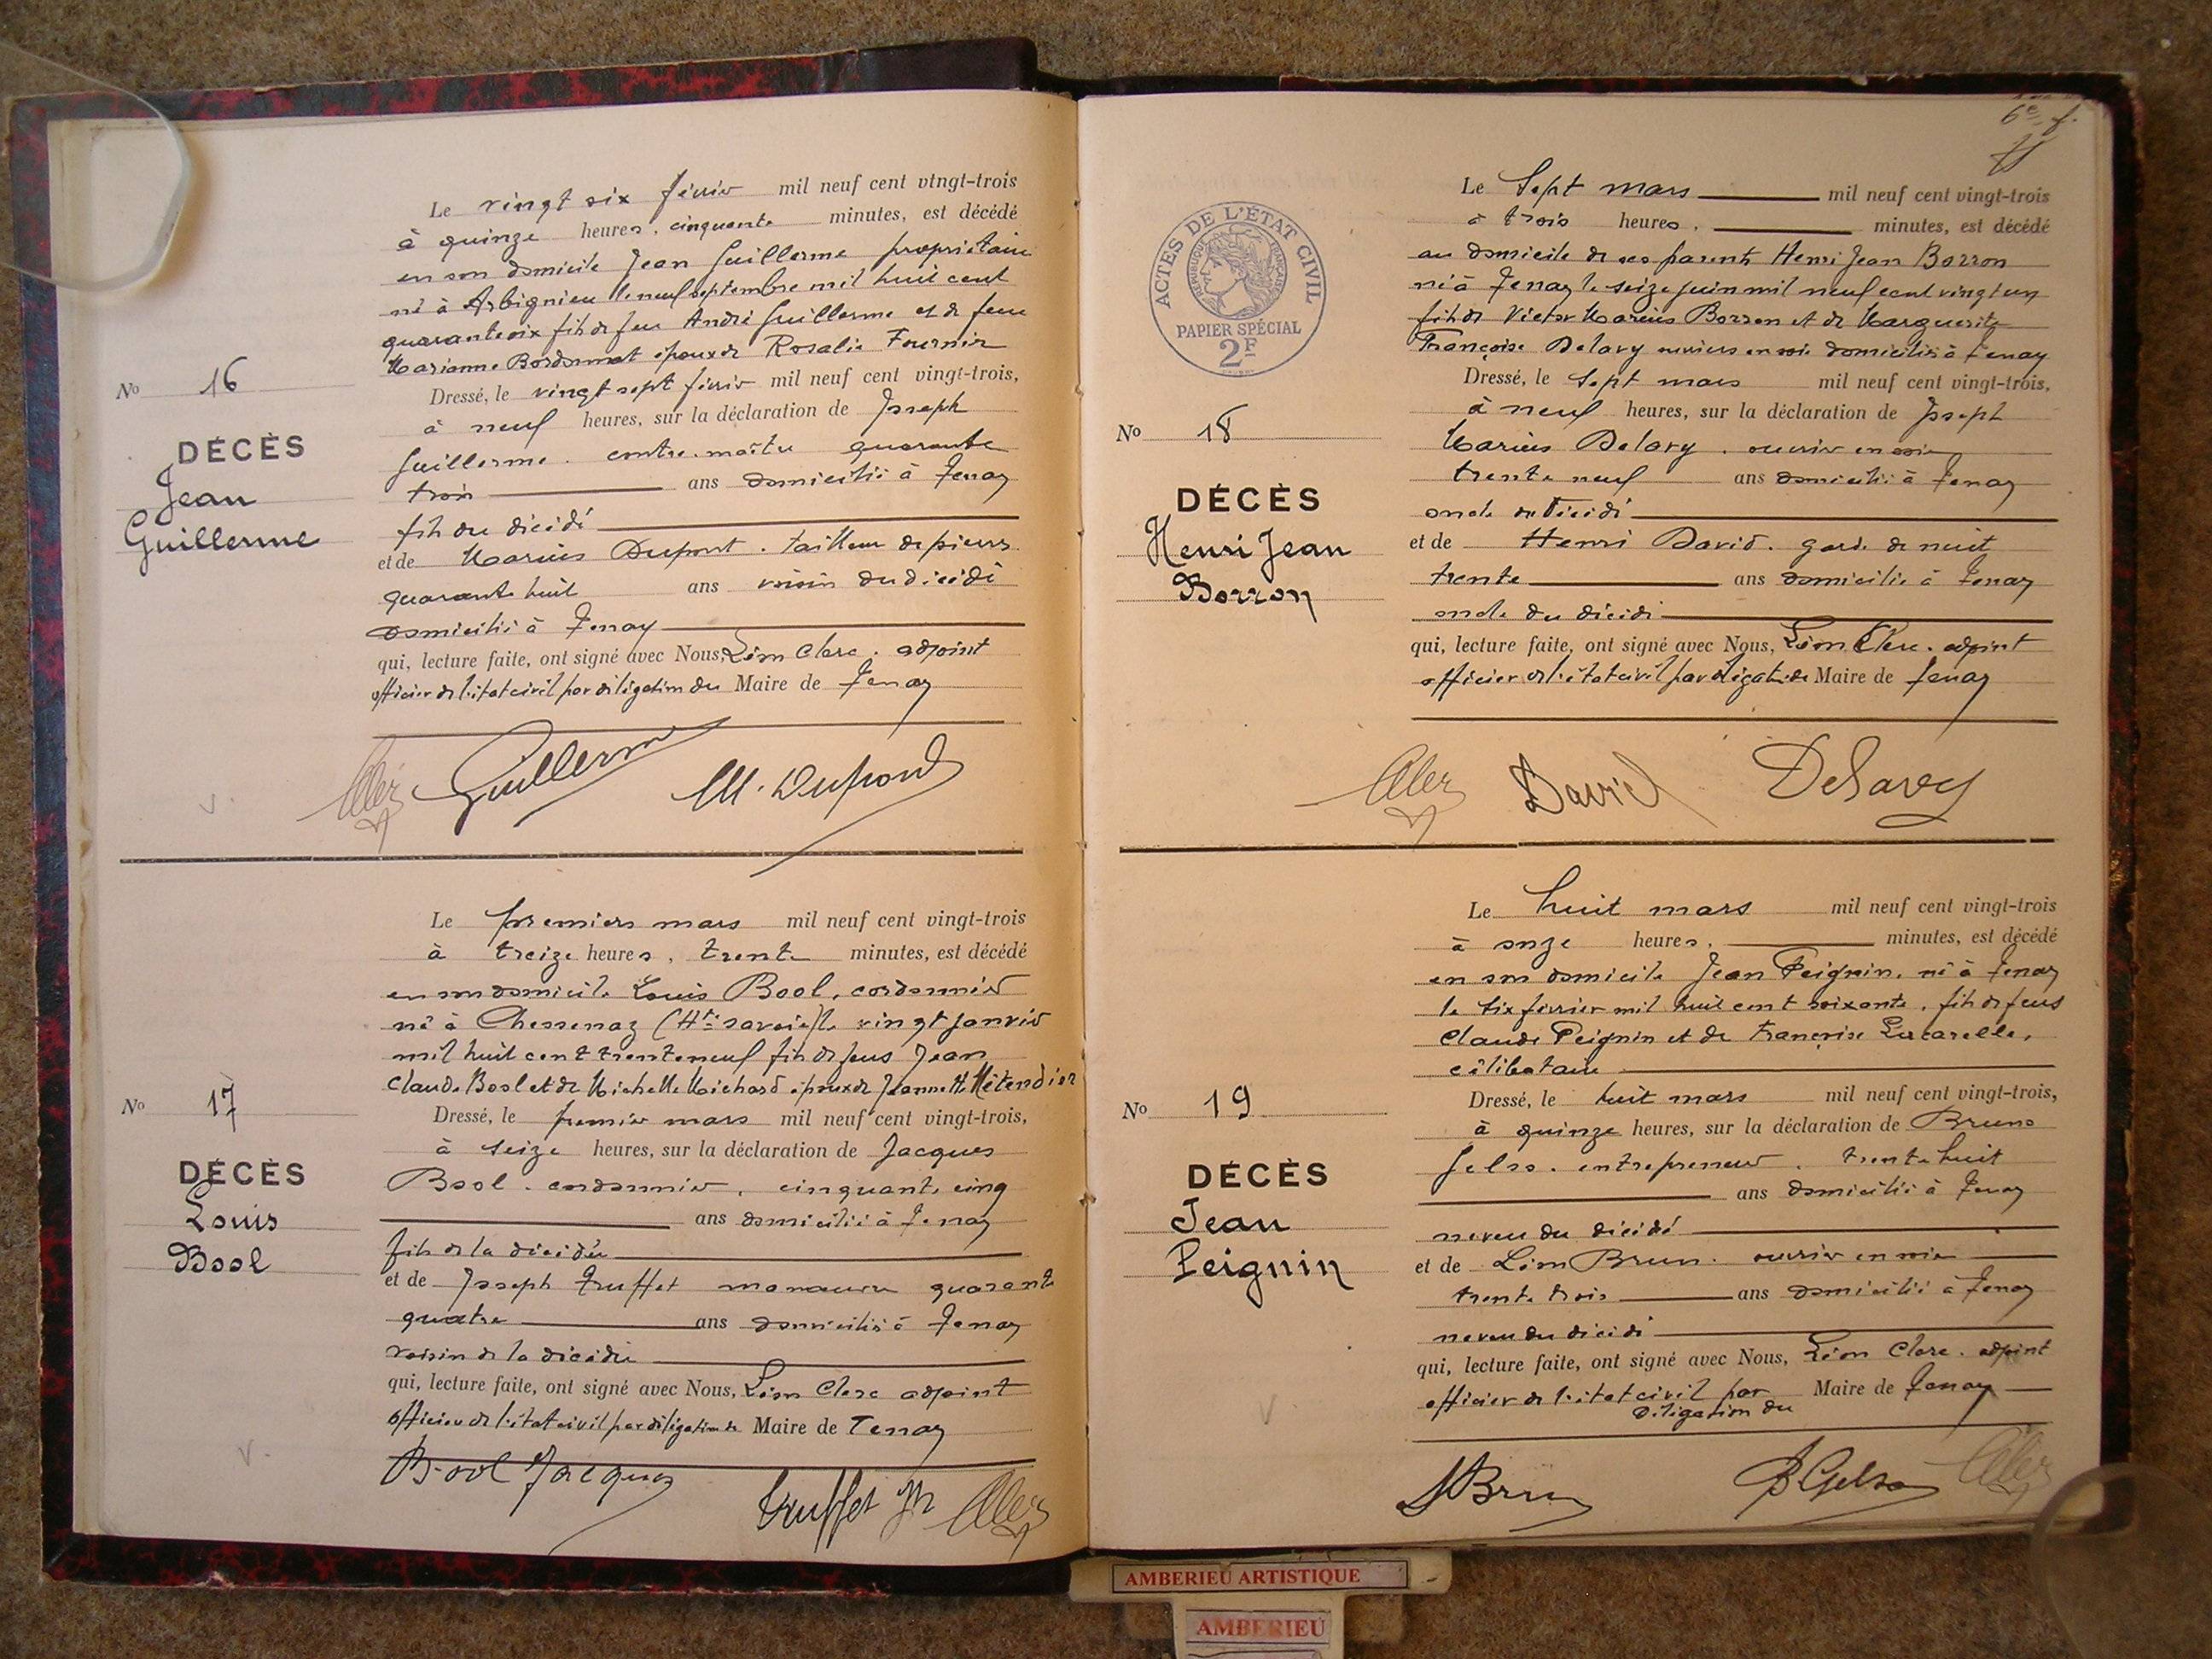 Le vingt six février mil neuf cent vingt-trois
à quinze heures, cinquante minutes, est décédé
en son domicile Jean Guillerme propriétaire
né à Arbignieu le neuf septembre mil huit cent
quarante six fils de feu André Guillerme et de feue
Marianne époux de Rosalie Fournier
Dressé, le vingt sept février mil neuf cent vingt-trois,
à neuf heures, sur la déclaration de Joseph
Guillerme. contre-maître quarante
trois ans domicilié à Tenay
fils du décédé
et de Marius Dupont. tailleur de pierres
quarante huit ans voisin du décédé
domicilié à Tenay
qui, lecture faite, ont signé avec Nous, Léon Clerc. adjoint
officier de l'état civil par délégation du Maire de Tenay
No 16
DÉCÈS
Jean
Guillerme
Guillerme
M. Dupond
Le premiers mars mil neuf cent vingt-trois
à treize heures, trente minutes, est décédé
en son domicile Louis Bool, cordonnier
né à Chessenaz (Hte savoie) le vingt janvier
mil huit cent trente neuf fils de feus Jean
Claude Bool et de Michelle Michard époux de Jeannette Métendier
Dressé, le premier mars mil neuf cent vingt-trois,
à seize heures, sur la déclaration de Jacques
Bool. cordonnier, cinquante cinq
ans domicilié à Tenay
fils de la décédée
et de Joseph Truffet manœuvre quarante
quatre ans domicilié à Tenay
voisin de la décédée
qui, lecture faite, ont signé avec Nous, Léon Clerc adjoint
officier de l'état civil par délégation du Maire de Tenay
No 17
DÉCÈS
Louis
Bool
Bool Jacques
truffet Jh
6e f.
ACTES DE L'ÉTAT CIVIL
RÉPUBLIQUE FRANÇAISE
PAPIER SPÉCIAL
2F
Le Sept mars mil neuf cent vingt-trois
à trois heures, minutes, est décédé
au domicile de ses parents Henri Jean Borron
né à Tenay le seize juin mil neuf cent vingt un
fils de Victor Marius Borron et de Marguerite
Françoise Delavy ouvriers en soie domiciliés à Tenay
Dressé, le Sept mars mil neuf cent vingt-trois,
à neuf heures, sur la déclaration de Joseph
Marius Delavy. ouvrier en soie
trente neuf ans domicilié à Tenay
oncle du décédé
et de Henri David. garde de nuit
trente ans domicilié à Tenay
oncle du décédé
qui, lecture faite, ont signé avec Nous, Léon Clerc. adjoint
officier de l'état civil par délégation du Maire de Tenay
No 18
DÉCÈS
Henri Jean
Borron
David
Delavey
Le huit mars mil neuf cent vingt-trois
à onze heures, minutes, est décédé
en son domicile Jean Peignin. né à Tenay
le six février mil huit cent soixante. fils de feus
Claude Peignin et de Françoise
célibataire
Dressé, le huit mars mil neuf cent vingt-trois,
à quinze heures, sur la déclaration de Bruno
Gelso. entrepreneur. trente huit
ans domicilié à Tenay
neveu du décédé
et de Léon Brun. ouvrier en soie
trente trois ans domicilié à Tenay
neveu du décédé
qui, lecture faite, ont signé avec Nous, Léon Clerc. adjoint
officier de l'état civil par délégation du Maire de Tenay
No 19
DÉCÈS
Jean
Peignin
LBrun
B Gelso
AMBERIEU ARTISTIQUE
AMBERIEU